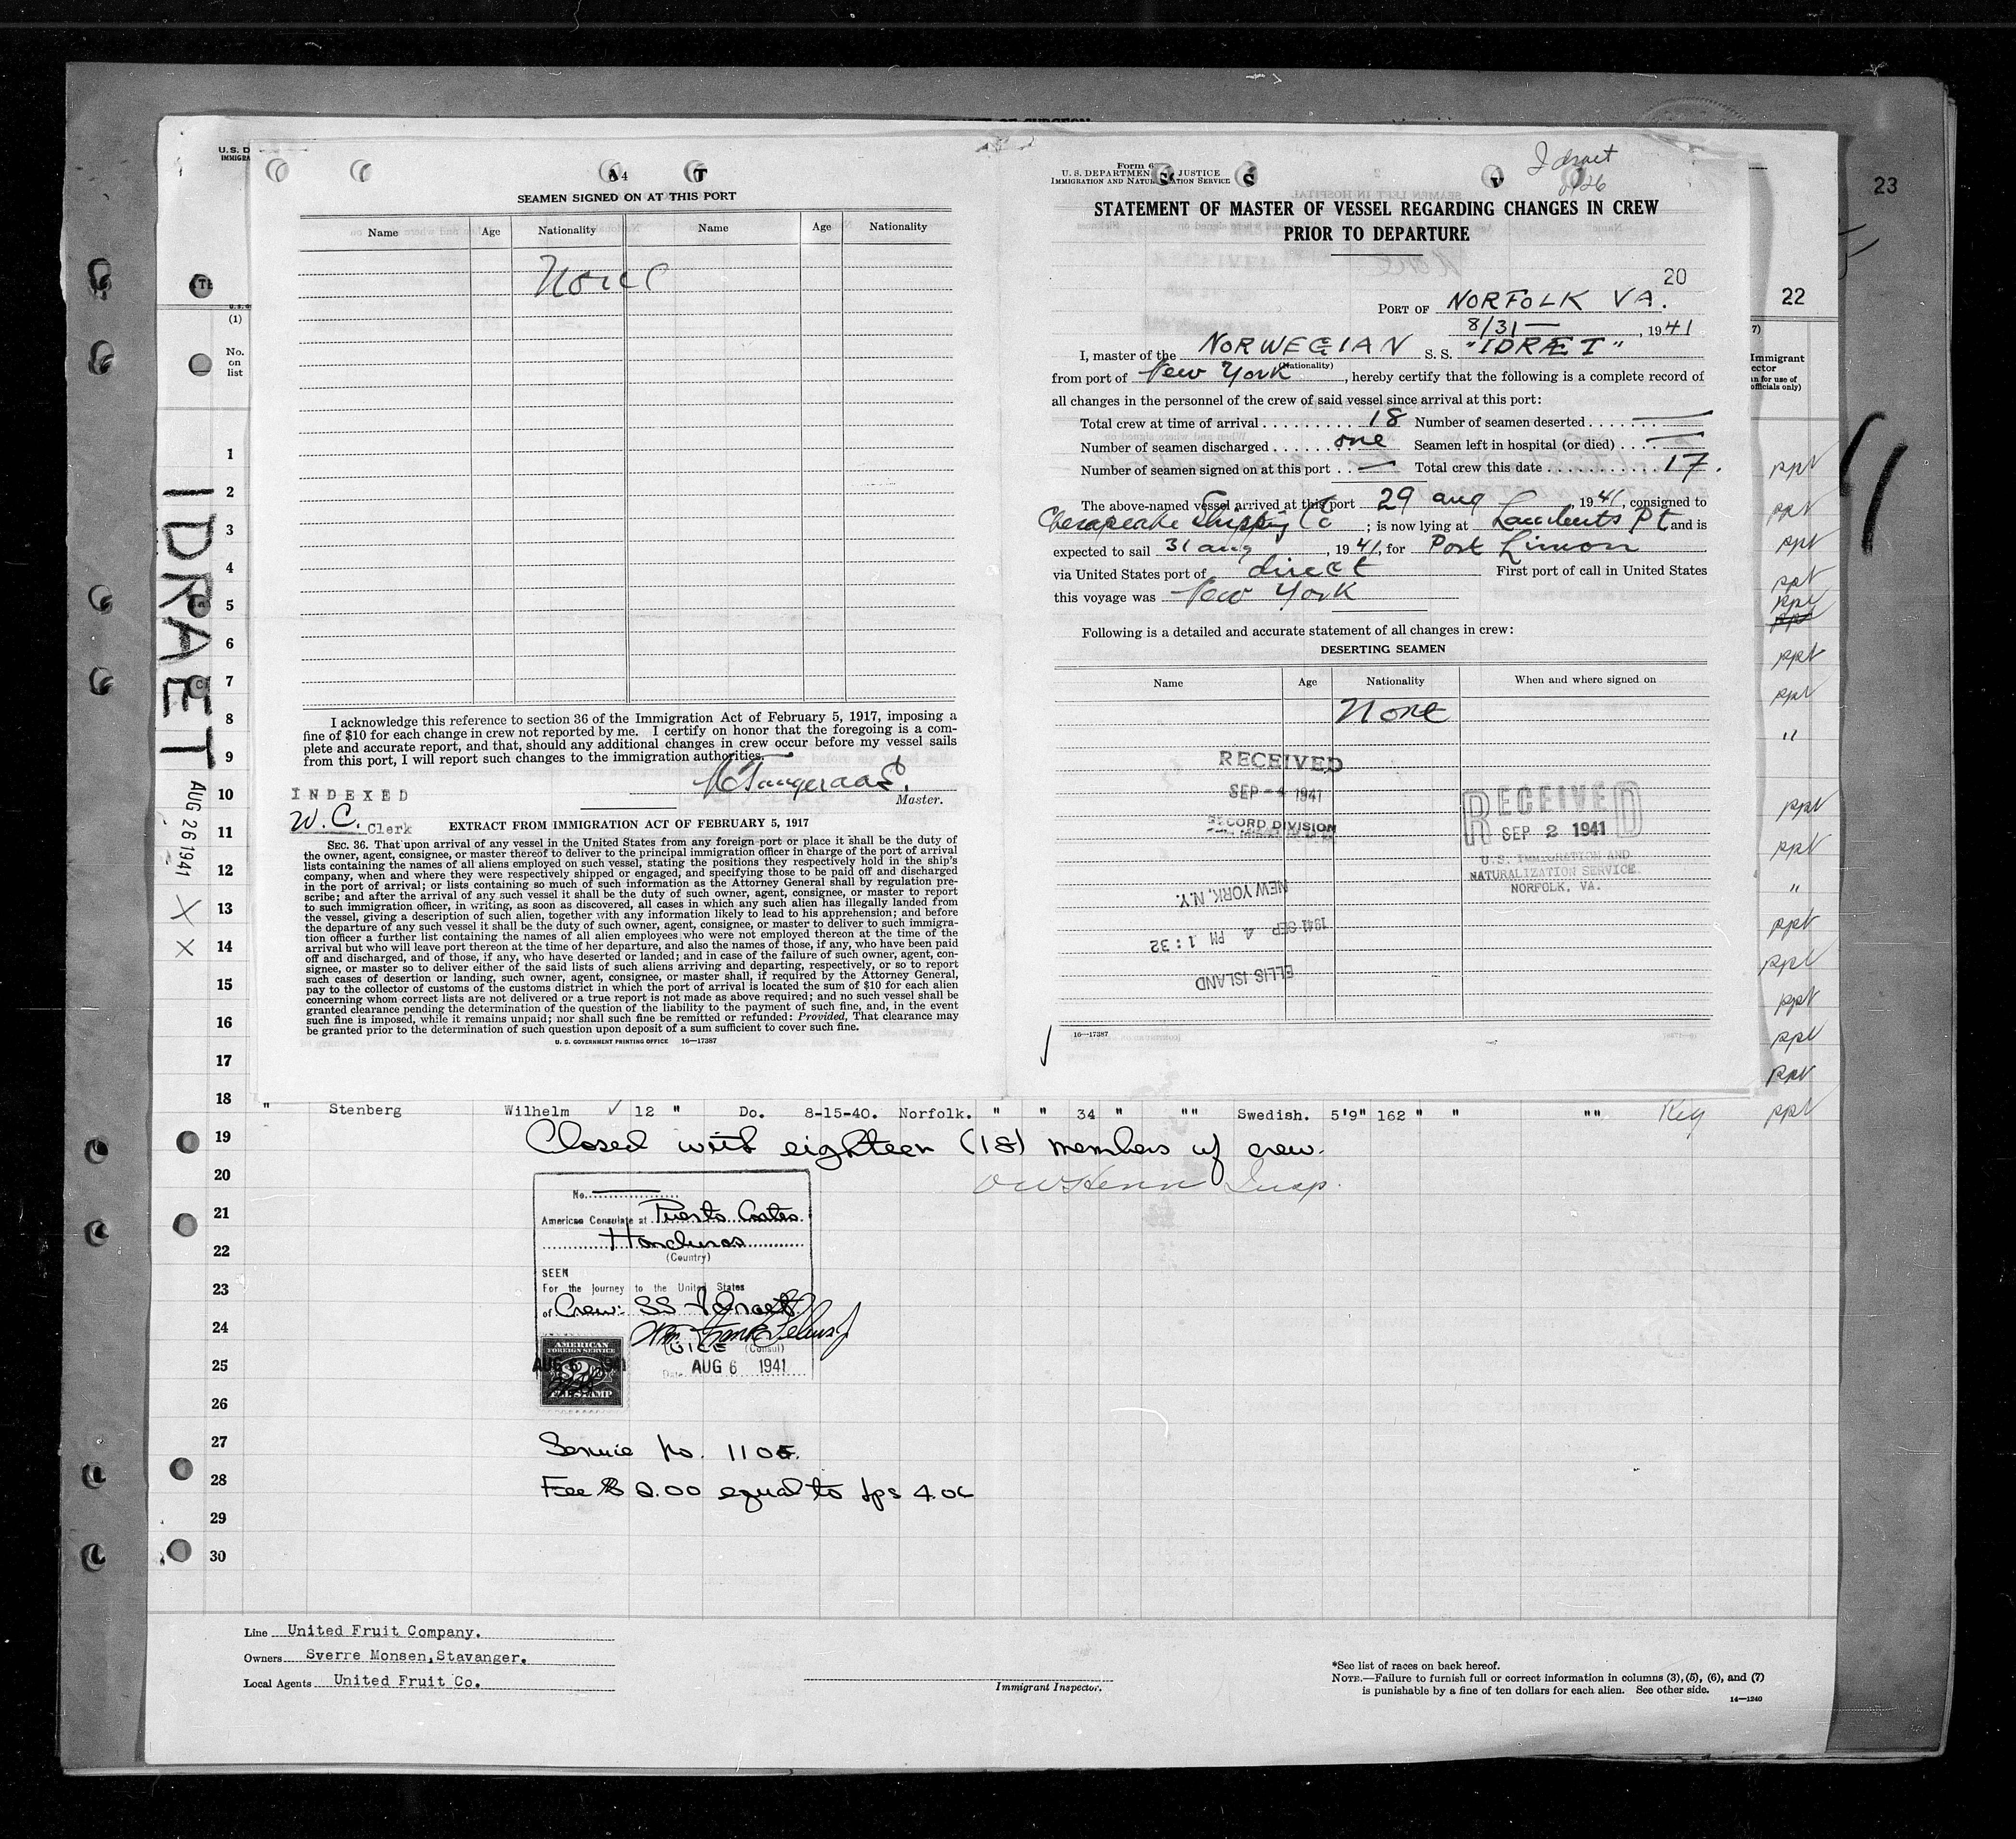 23
22
U.S. D
IMMIGRA
(1)
No.
on
list
IDRAET
AUG 26 1941
X
X X
4
SEAMEN SIGNED ON AT THIS PORT
Name Age Nationality Name Age Nationality
None
I acknowledge this reference to section 36 of the Immigration Act of February 5, 1917, imposing a
fine of $10 for each change in crew not reported by me. I certify on honor that the foregoing is a com-
plete and accurate report, and that, should any additional changes in crew occur before my vessel sails
from this port, I will report such changes to the immigration authorities.
Master.
INDEXED
W. C. Clerk
EXTRACT FROM IMMIGRATION ACT OF FEBRUARY 5, 1917
SEC. 36. That upon arrival of any vessel in the United States from any foreign port or place it shall be the duty of
the owner, agent, consignee, or master thereof to deliver to the principal immigration officer in charge of the port of arrival
lists containing the names of all aliens employed on such vessel, stating the positions they respectively hold in the ship's
company, when and where they were respectively shipped or engaged, and specifying those to be paid off and discharged
in the port of arrival; or lists containing so much of such information as the Attorney General shall by regulation pre-
scribe; and after the arrival of any such vessel it shall be the duty of such owner, agent, consignee, or master to report
to such immigration officer, in writing, as soon as discovered, all cases in which any such alien has illegally landed from
the vessel, giving a description of such alien, together with any information likely to lead to his apprehension; and before
the departure of any such vessel it shall be the duty of such owner, agent, consignee, or master to deliver to such immigra-
tion officer a further list containing the names of all alien employees who were not employed thereon at the time of the
arrival but who will leave port thereon at the time of her departure, and also the names of those, if any, who have been paid
off and discharged, and of those, if any, who have deserted or landed; and in case of the failure of such owner, agent, con-
signee, or master so to deliver either of the said lists of such aliens arriving and departing, respectively, or so to report
such cases of desertion or landing, such owner, agent, consignee, or master shall, if required by the Attorney General,
pay to the collector of customs of the customs district in which the port of arrival is located the sum of $10 for each alien
concerning whom correct lists are not delivered or a true report is not made as above required; and no such vessel shall be
granted clearance pending the determination of the question of the liability to the payment of such fine, and, in the event
such fine is imposed, while it remains unpaid; nor shall such fine be remitted or refunded: Provided, That clearance may
be granted prior to the determination of such question upon deposit of a sum sufficient to cover such fine.
U. S. GOVERNMENT PRINTING OFFICE 16—17387
Form 6
U. S. DEPARTMEN JUSTICE
IMMIGRATION AND NATURALIZATION SERVICE
Idraet
8/26
STATEMENT OF MASTER OF VESSEL REGARDING CHANGES IN CREW
PRIOR TO DEPARTURE
20
PORT OF NORFOLK VA.
8/31 — , 1941
I, master of the NORWEGIAN S. S. "IDRÆT"
(Nationality)
from port of New York, hereby certify that the following is a complete record of
all changes in the personnel of the crew of said vessel since arrival at this port:
Total crew at time of arrival 18 Number of seamen deserted —
Number of seamen discharged one Seamen left in hospital (or died) —
Number of seamen signed on at this port — Total crew this date 17.
The above-named vessel arrived at this port 29 aug, 1941, consigned to
Chesapeake Shipping Co; is now lying at Lamberts Pt and is
expected to sail 31 aug, 1941, for Port Limon
via United States port of direct First port of call in United States
this voyage was New York
Following is a detailed and accurate statement of all changes in crew:
DESERTING SEAMEN
Name Age Nationality When and where signed on
None
RECEIVED
SEP -4 1941
RECORD DIVISION
RECEIVED
SEP 2 1941
U.S. IMMIGRATION AND
NATURALIZATION SERVICE.
NORFOLK, VA.
NEW YORK, N.Y.
1941 SEP 4 PM 1:32
ELLIS ISLAND
16—17387
Immigrant
ector
an for use of
officials only)
1
2
3
4
5
6
7
8
9
10
11
12
13
14
15
16
17
18 " Stenberg Wilhelm ✓ 12 " Do. 8-15-40. Norfolk. " " 34 " "" Swedish. 5'9" 162 " " "" Reg ppt
19 Closed with eighteen (18) members of crew.
20
Insp.
21
22
23
24
25
26
27
28
29
30
No.
American Consulate at Puerto Cortes
Honduras
(Country)
SEEN
For the journey to the United States
of Crew: SS Idraet
VICE (Consul)
Date AUG 6 1941
AMERICAN
FOREIGN SERVICE
AUG 6 1941
$2
FEE STAMP
Service No. 1105.
Fee $ 2.00 equal to Lps 4.00
Line United Fruit Company.
Owners Sverre Monsen, Stavanger.
Local Agents United Fruit Co.
Immigrant Inspector.
*See list of races on back hereof.
NOTE.—Failure to furnish full or correct information in columns (3), (5), (6), and (7)
is punishable by a fine of ten dollars for each alien. See other side.
14—1240